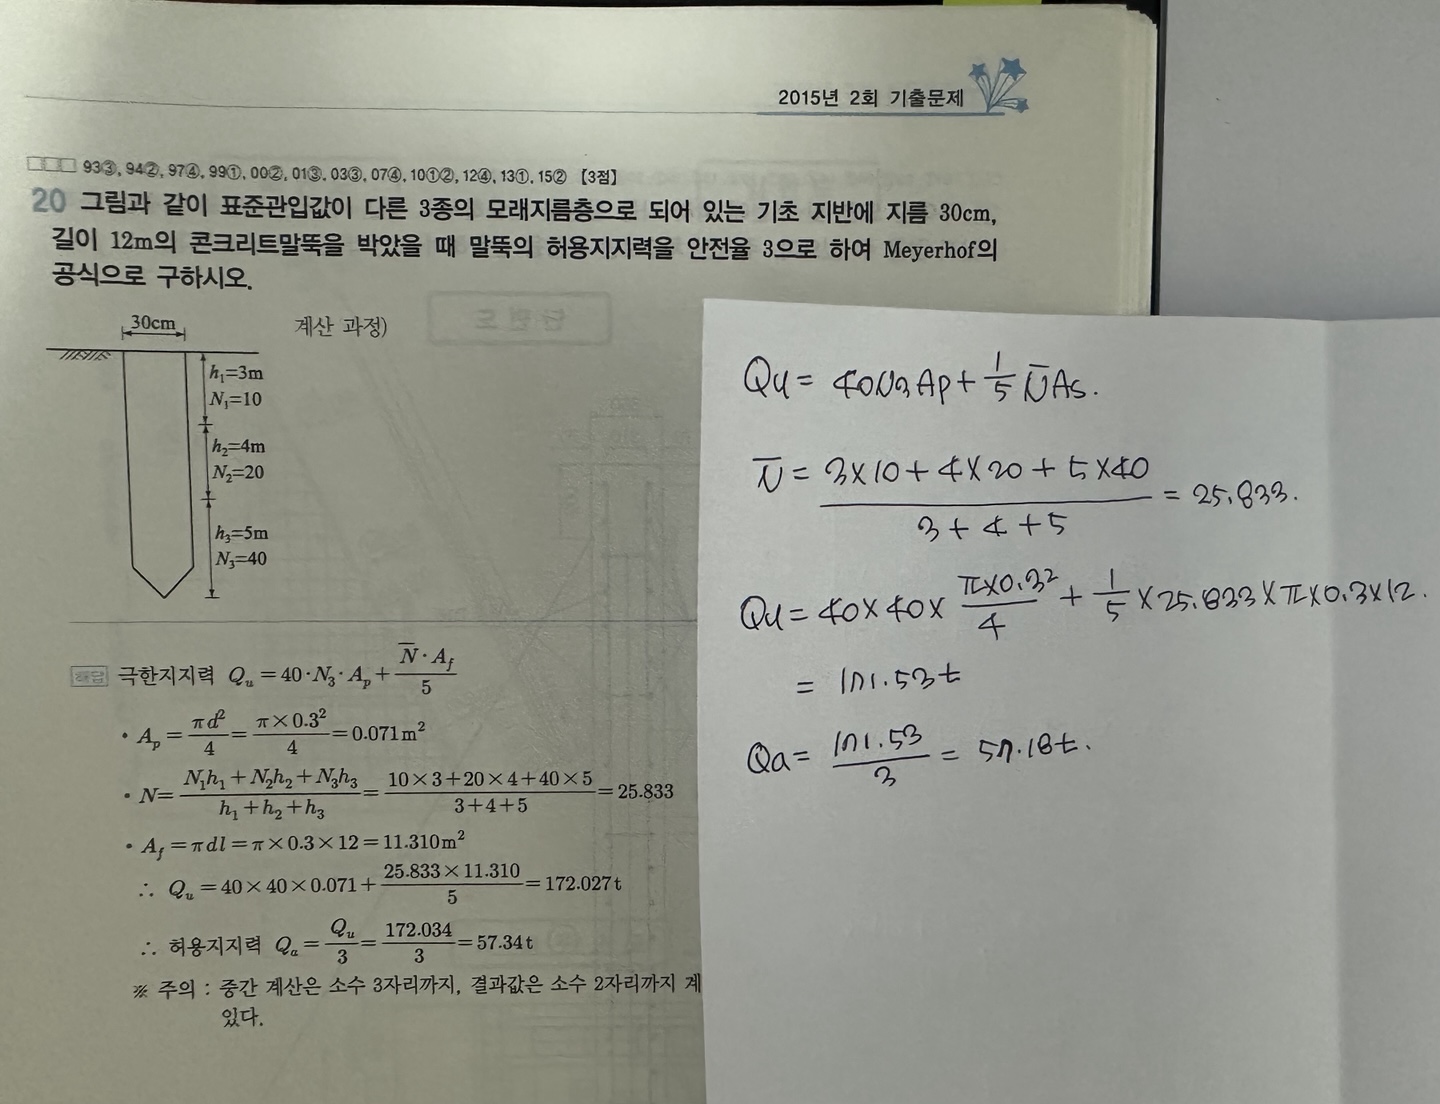 2015년 2회 기출문제
93③, 94②, 97④, 99①, 00②, 01③, 03③, 07④, 10①②, 12④, 13①, 15② 【3점】
20 그림과 같이 표준관입값이 다른 3종의 모래지름층으로 되어 있는 기초 지반에 지름 30cm,
길이 12m의 콘크리트말뚝을 박았을 때 말뚝의 허용지지력을 안전율 3으로 하여 Meyerhof의
공식으로 구하시오.
30cm
계산 과정)
h₁=3m
N₁=10
h₂=4m
N₂=20
h₃=5m
N₃=40
해답 극한지지력 Qᵤ = 40·N₃·Aₚ + N̄·A_f / 5
• Aₚ = πd²/4 = π×0.3²/4 = 0.071m²
• N = (N₁h₁+N₂h₂+N₃h₃)/(h₁+h₂+h₃) = (10×3+20×4+40×5)/(3+4+5) = 25.833
• A_f = πdl = π×0.3×12 = 11.310m²
∴ Qᵤ = 40×40×0.071 + 25.833×11.310/5 = 172.027t
∴ 허용지지력 Qₐ = Qᵤ/3 = 172.034/3 = 57.34t
※ 주의 : 중간 계산은 소수 3자리까지, 결과값은 소수 2자리까지 계
있다.
Qu = 40N3Ap + 1/5 N̄As.
N̄ = (3×10+4×20+5×40)/(3+4+5) = 25.833.
Qu = 40×40× π×0.3²/4 + 1/5 ×25.833×π×0.3×12.
= 171.53t
Qa = 171.53/3 = 57.18t.